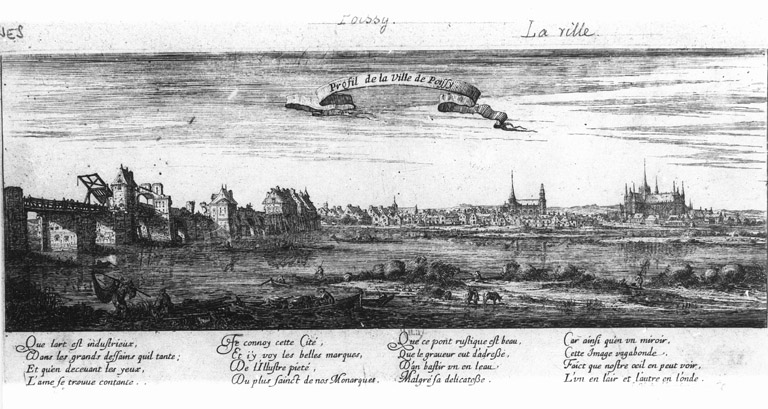 Poissy.
La ville.
NES
Profil de la Ville de Poissy
Que lart est industrieux,
Dans les grands desseins quil tante;
Et qu'en deceuant les yeux,
L'ame se trouue contante.
Je connoy cette Cité,
Et i'y voy les belles marques,
De l'Illustre pieté,
Du plus sainct de nos Monarques.
Que ce pont rustique est beau,
Que le graueur eut d'adresse,
D'an bastir vn en leau
Malgré sa delicatesse.
Car ainsi qu'en vn miroir,
Cette Image vagabonde,
Faict que nostre œil en peut voir,
L'vn en l'air et l'autre en l'onde.